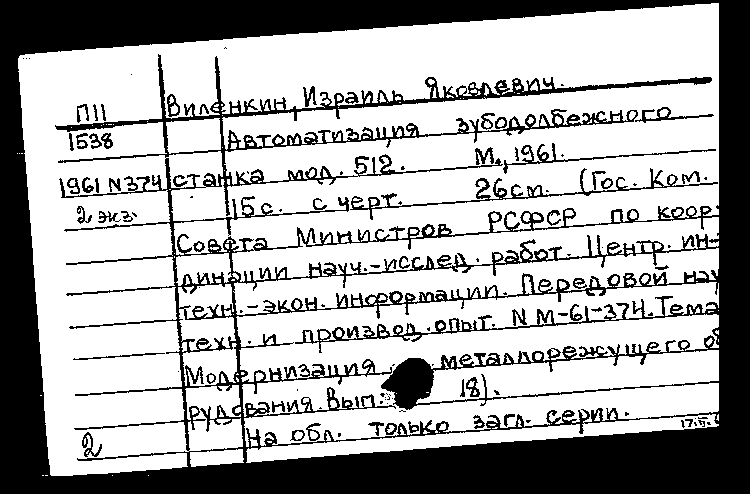 П11 Виленкин, Израиль Яковлевич.
1538 Автоматизация зубодолбежного
1961 N374 станка мод. 512. М., 1961.
2 экз. 15с. с черт. 26см. (Гос. Ком.
Совета Министров РСФСР по коор-
динации науч.-исслед. работ. Центр. ин-
техн.-экон. информации. Передовой нау
техн. и производ. опыт. N М-61-374. Тема
Модернизация металлорежущего об
рудования. Вып. 18).
2 На обл. только загл. серии.